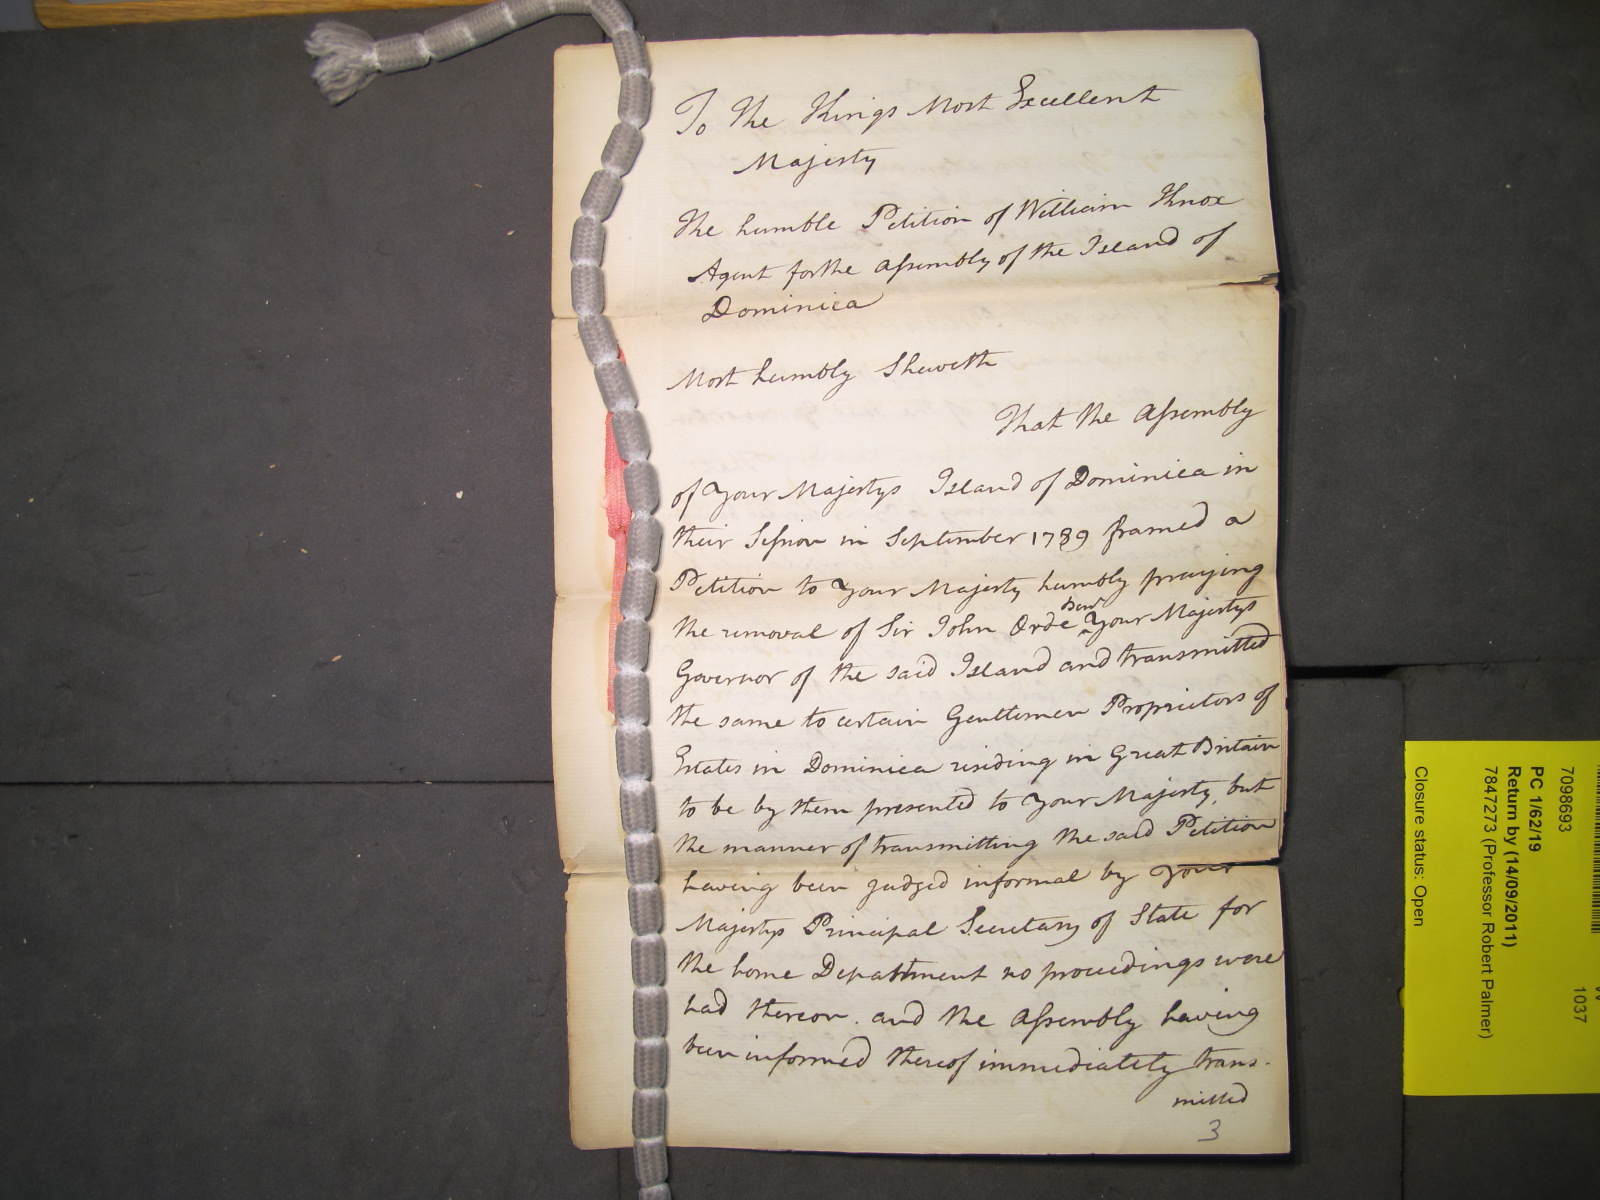 To The Kings Most Excellent
Majesty
The humble Petition of William Knox
Agent for the Assembly of the Island of
Dominica
Most humbly Sheweth
That the Assembly
of Your Majestys Island of Dominica in
their Session in September 1789 framed a
Petition to Your Majesty humbly praying
the removal of Sir John Orde Bart Your Majestys
Governor of the said Island and transmitted
the same to certain Gentlemen Proprietors of
Estates in Dominica residing in Great Britain
to be by them presented to Your Majesty, but
the manner of transmitting the said Petition
having been judged informal by Your
Majestys Principal Secretary of State for
the home Department no proceedings were
had thereon. and the Assembly having
been informed thereof immediately trans-
mitted
3
7098693
PC 1/62/19
Return by (14/09/2011)
7847273 (Professor Robert Palmer)
Closure status: Open
1037